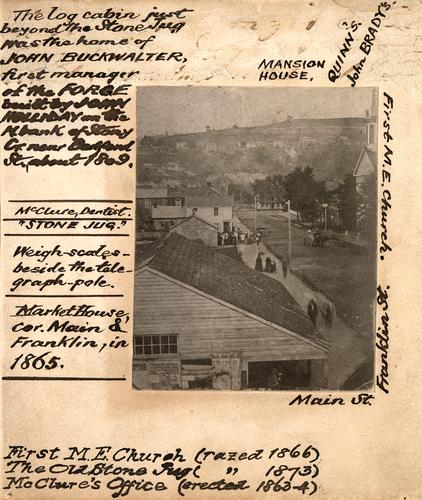 The log cabin just
beyond the Stone Jug
was the home of
JOHN BUCKWALTER,
first manager
of the FORGE
built by JOHN
HOLLIDAY on the
N. bank of Stony
Cr. near Bedford
St., about 1809.
MANSION
HOUSE,
QUINN'S.
John BRADY'S
First M. E. Church.
Franklin St.
McClure, Dentist.
"STONE JUG."
Weigh-scales-
beside the tele-
graph-pole.
Market House,
cor. Main &
Franklin, in
1865.
Main St.
First M. E. Church (razed 1866)
The Old Stone Jug ( " 1873)
McClure's Office (erected 1863-4)